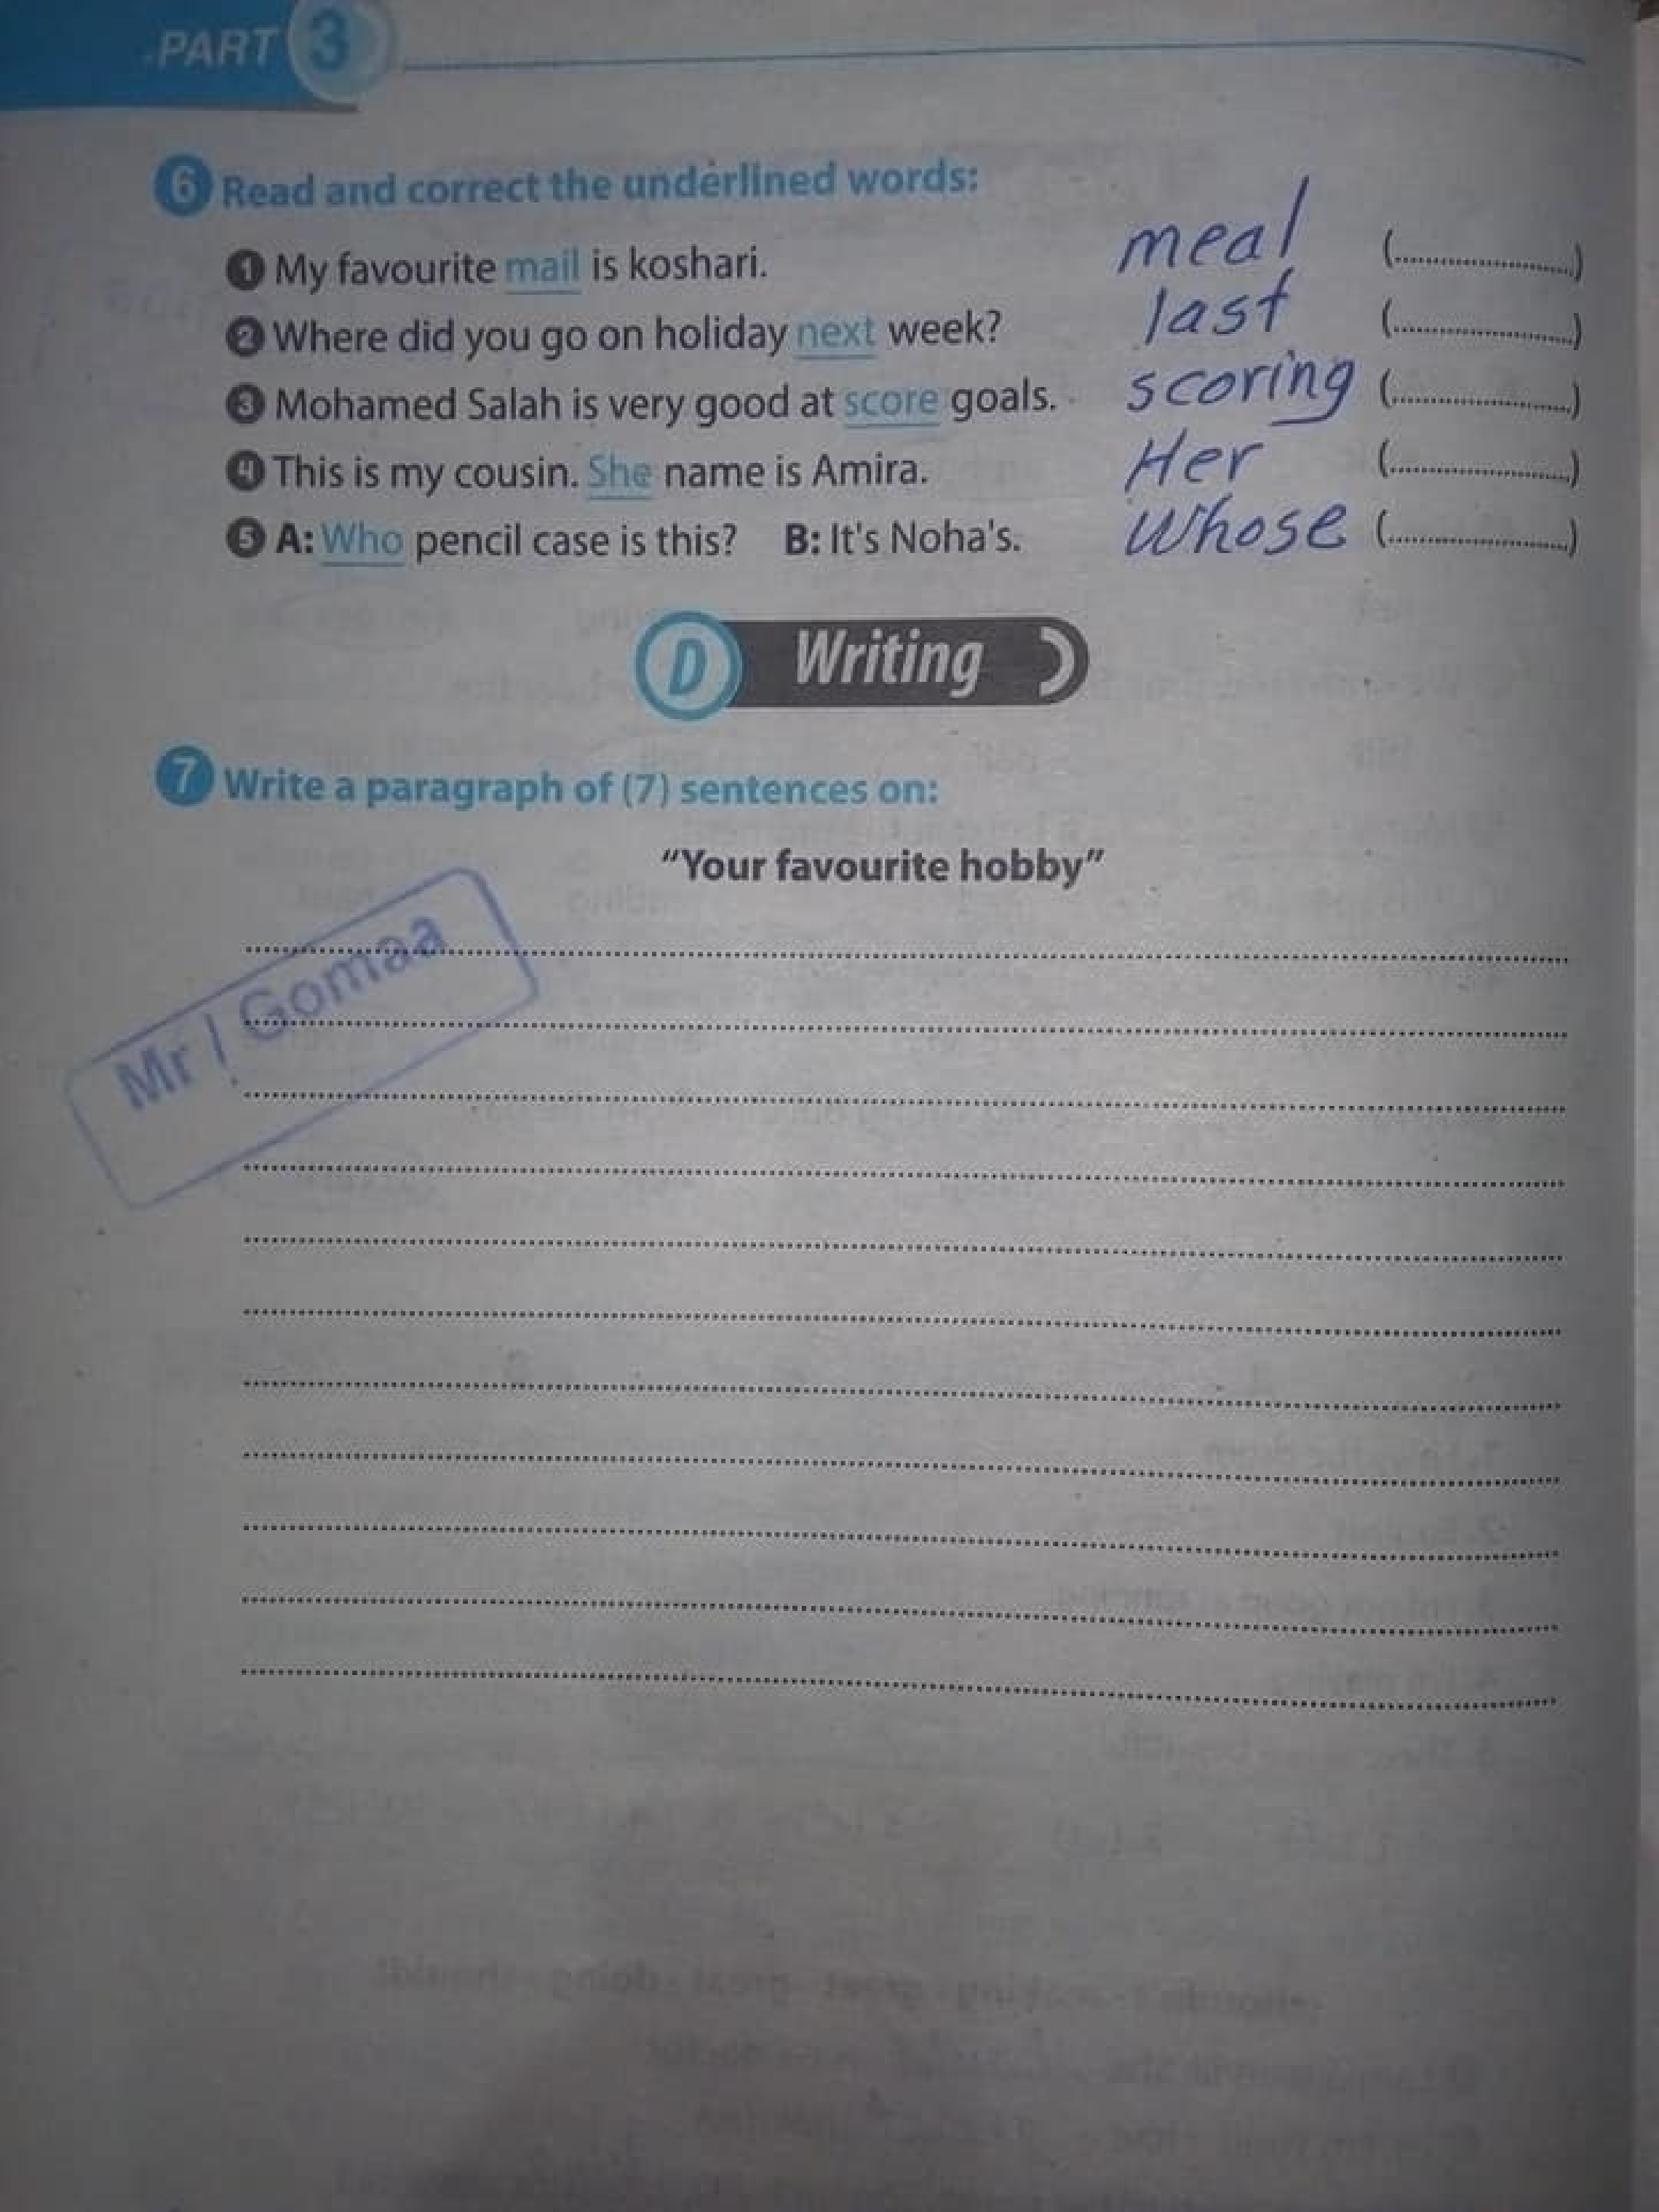 PART 3
6 Read and correct the underlined words:
1 My favourite mail is koshari. meal (....................)
2 Where did you go on holiday next week? last (....................)
3 Mohamed Salah is very good at score goals. scoring (....................)
4 This is my cousin. She name is Amira. Her (....................)
5 A: Who pencil case is this? B: It's Noha's. Whose (....................)
D Writing
7 Write a paragraph of (7) sentences on:
"Your favourite hobby"
Mr / Gomaa